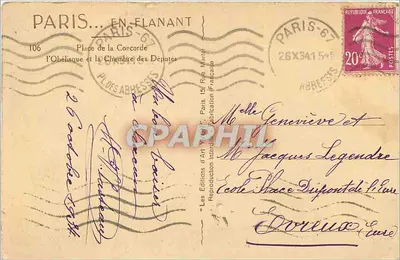 PARIS... EN FLANANT
106 Place de la Concorde
l'Obélisque et la Chambre des Députés
PARIS-67
Pl. DES ABBESSES
PARIS-67
26 X 34 15
ABBESSES
REPUBLIQUE FRANCAISE
20c
POSTES
Un bon baiser
à chacun
26 octobre 1934
Les Editions d'Art Paris, 15, Rue Martel
Reproduction Interdite Fabrication Française
CPARHIL
Melle Geneviève et
M. Jacques Legendre
Ecole Place Dupont de l'Eure
Evreux (Eure)